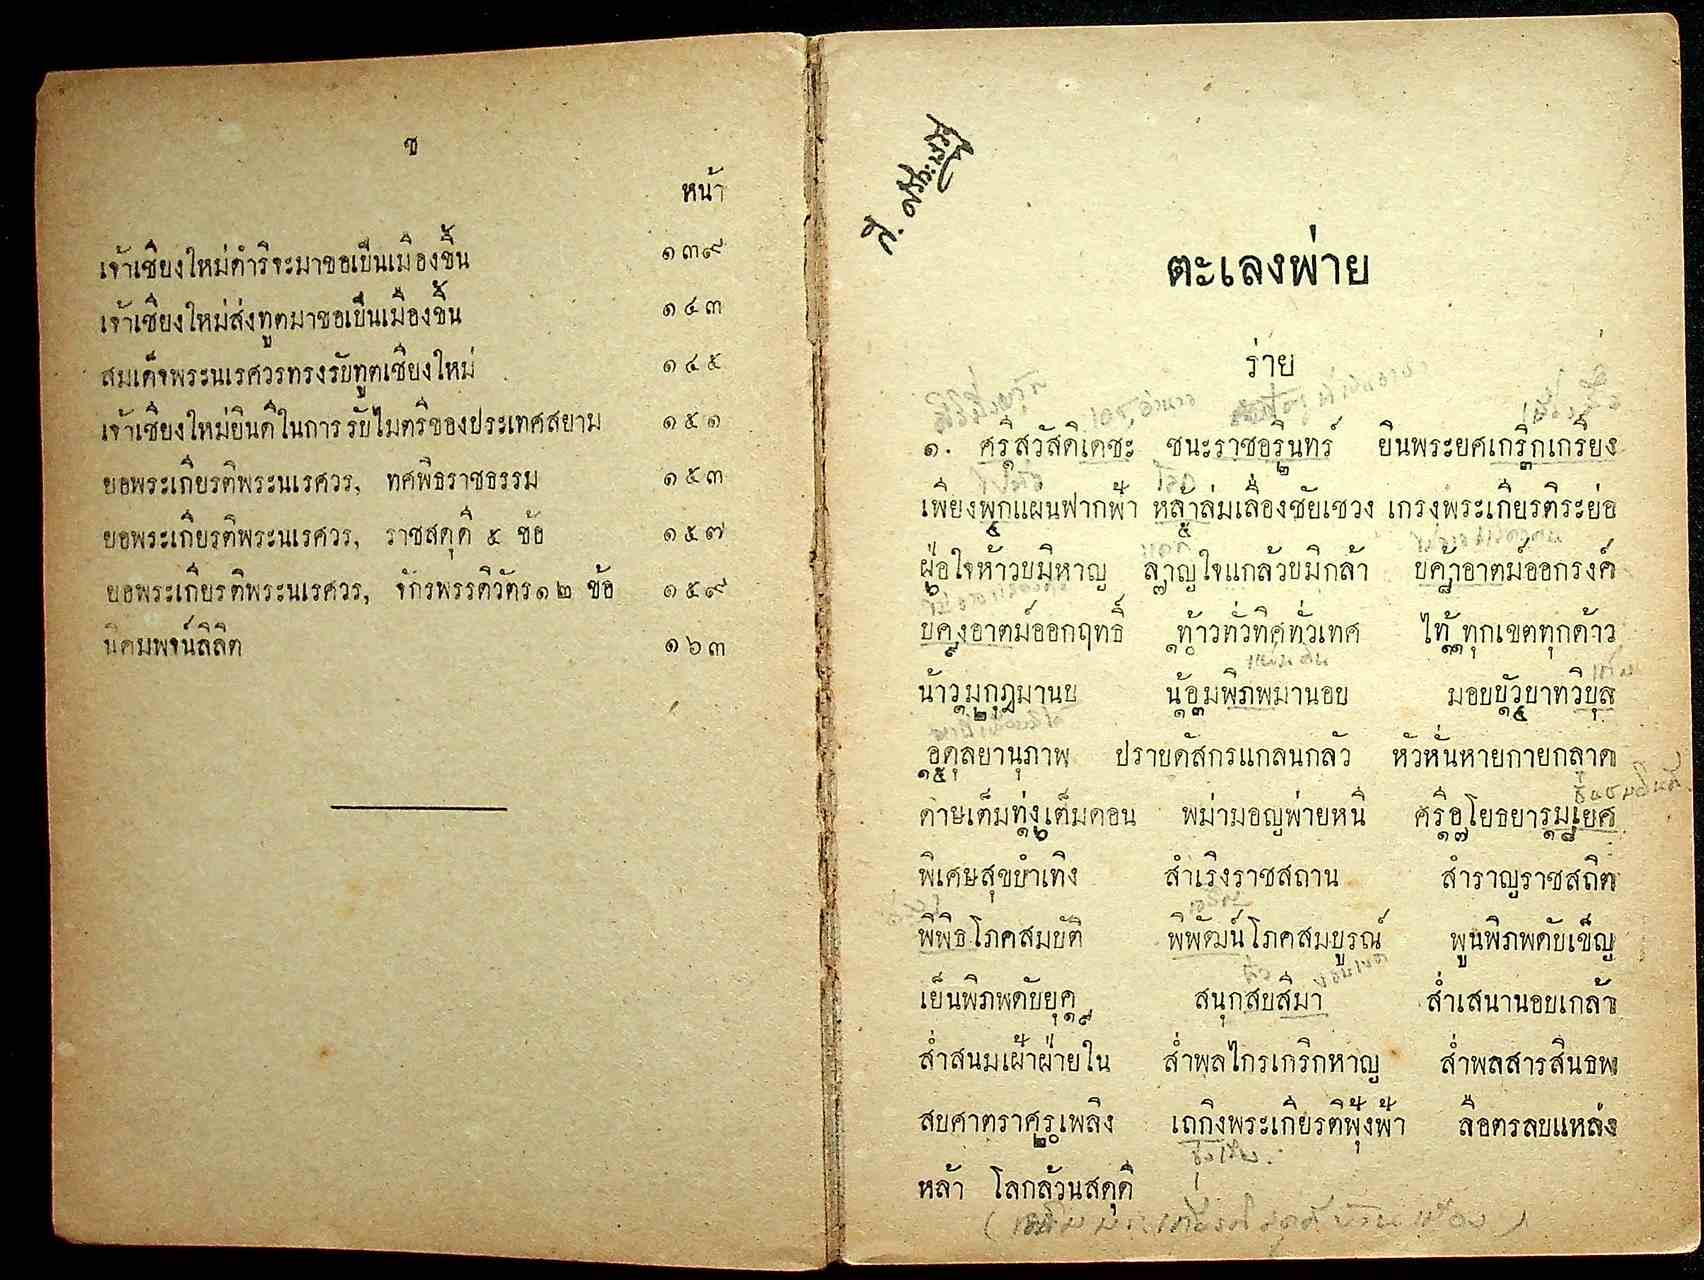 ช
หน้า
เจ้าเชียงใหม่ดำริจะมาขอเป็นเมืองขึ้น ๑๓๙
เจ้าเชียงใหม่ส่งทูตมาขอเป็นเมืองขึ้น ๑๔๓
สมเด็จพระนเรศวรทรงรับทูตเชียงใหม่ ๑๔๕
เจ้าเชียงใหม่ยินดีในการรับไมตรีของประเทศสยาม ๑๕๑
ยอพระเกียรติพระนเรศวร, ทศพิธราชธรรม ๑๕๓
ยอพระเกียรติพระนเรศวร, ราชสดุดี ๕ ข้อ ๑๕๗
ยอพระเกียรติพระนเรศวร, จักรพรรดิวัตร๑๒ ข้อ ๑๕๙
นิคมพจน์ลิลิต ๑๖๓
ตะเลงพ่าย
ร่าย
๑. ศรีสวัสดิเดชะ ชนะราชอรินทร์ ยินพระยศเกริกเกรียง
เพียงพกแผ่นฟากฟ้า หล้าล่มเลื่องชัยเชวง เกรงพระเกียรติระย่อ
ฝ่อใจห้าวบมิหาญ ลาญใจแกล้วบมิกล้า บค้าอาตม์ออกรงค์
บคงอาตม์ออกฤทธิ์ ท้าวทั่วทิศทั่วเทศ ไท้ทุกเขตทุกด้าว
น้าวมกุฎมานบ น้อมพิภพมานอบ มอบบัวบาทวิบุล
อดุลยานุภาพ ปราบดัสกรแกลนกลัว หัวหั่นหายกายกลาด
ดาษเต็มทุ่งเต็มดอน พม่ามอญพ่ายหนี ศรีอโยธยารมเยศ
พิเศษสุขบำเทิง สำเริงราชสถาน สำราญราชสถิต
พิพิธโภคสมบัติ พิพัฒน์โภคสมบูรณ์ พูนพิภพดับเข็ญ
เย็นพิภพดับยุค สนุกสบสีมา ส่ำเสนานอบเกล้า
ส่ำสนมเฝ้าฝ่ายใน ส่ำพลไกรเกริกหาญ ส่ำพลสารสินธพ
สบศาตราศรเพลิง เถกิงพระเกียรติฟุ้งฟ้า ลือตรลบแหล่ง
หล้า โลกล้วนสดุดี